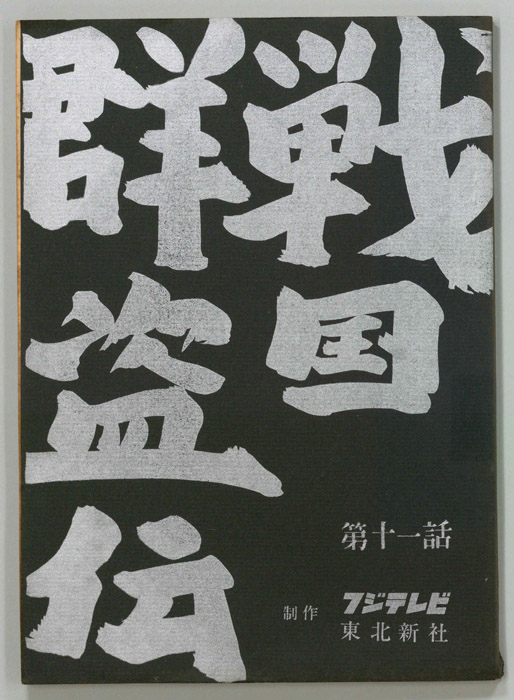 戦国
群盗伝
第十一話
制作 フジテレビ
東北新社